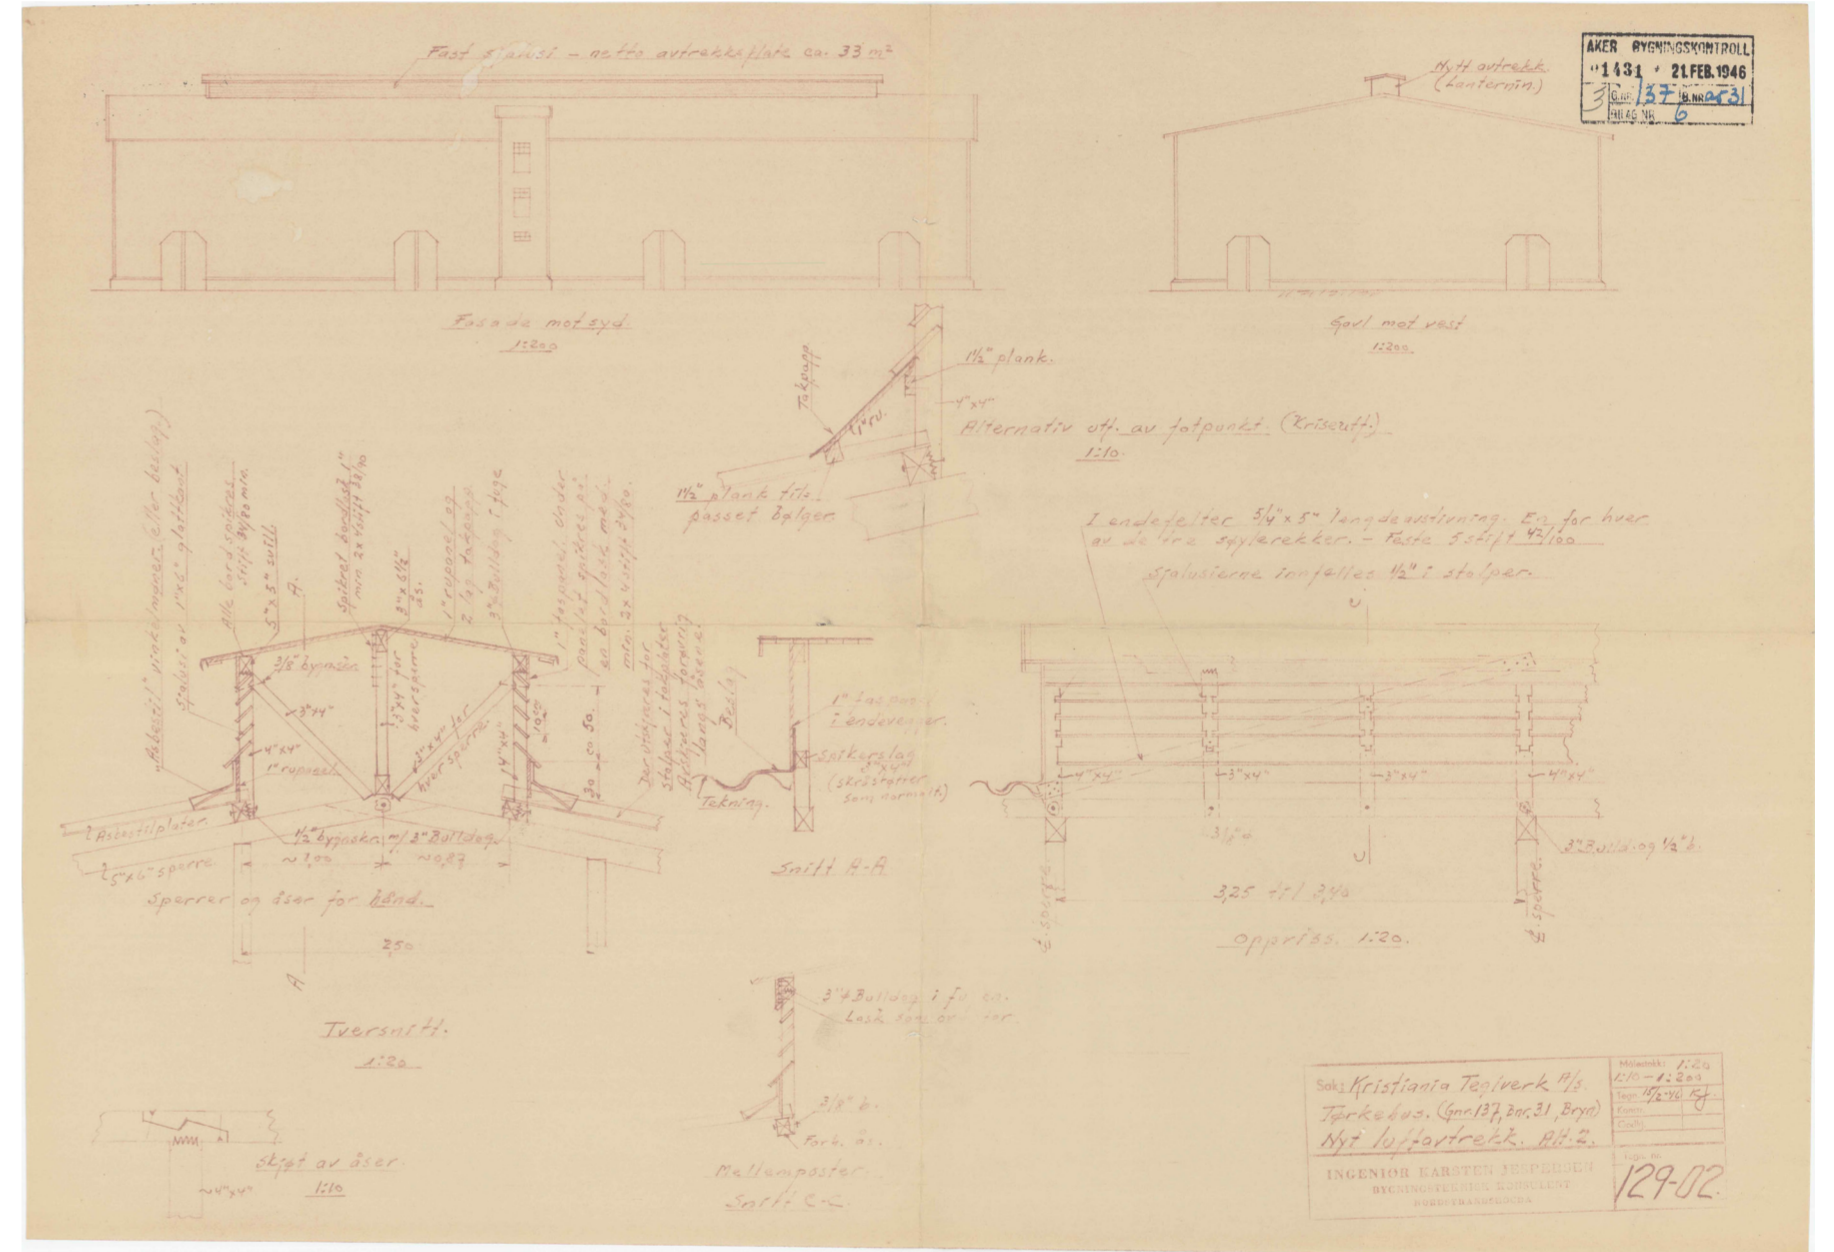 Fast sjalusi – netto avtrekksflate ca. 33 m²
AKER BYGNINGSKONTROLL
01431 * 21.FEB.1946
3 G.NR. 137 B.NR. ar 31
BILAG NR 6
Nytt avtrekk
(Lanternin.)
Fasade mot syd.
1:200
Gavl mot vest
1:200
Takpapp
1½" plank.
4"x4"
1" ru.
Alternativ utf. av fotpunkt. (Kriseutf.)
1:10.
1½" plank til-
passet bølger.
I endefelter 5/4" x 5" lengdeavstivning. En for hver
av de tre søylerekker. – Feste 5 stift 42/100
Sjalusierne innfelles ½" i stolper.
„Asbestil" vinkelmøner (eller beslag.)
Sjalusi av 1"x6" glattkant
Alle bord spikres
stift 34/80 min.
5"x5" svill.
A.
Spikret bordlask 1"
min. 2x4 stift 38/90
3"x6½"
ås.
1" rupanel og
2 lag takpapp.
3" Bulldog i fuge
1" faspanel. Under
panelet spikres på
en bordlask med
min. 2x4 stift 34/80.
Der utskjæres for
stolper i takplater
langs åsene.
3/8" bygnskr.
3"x4"
3"x4" for
hver sperre
3"x4" for
hver sperre.
4"x4"
1" rupanel.
4"x4"
30
ca 50.
Asbestilplater.
½" bygnskr. m/ 3" Bulldog.
~1,00
~0,87
5"x6" sperre.
Sperrer og åser for hånd.
250
A
Tversnitt.
1:20
Beslag
1" faspan
i endevegger.
Spikerslag
(skråstøtter
som normalt)
Tekning.
Snitt A-A
C
4"x4"
3"x4"
3"x4"
4"x4"
3" Bulld. og ½" b.
C
¢ sperre.
¢ sperre.
3,25 til 3,40
Oppriss. 1:20.
3" Bulldog i fu
Lask som
3/8" b.
Forb. ås.
Mellemposter
Snitt C-C.
Skjøt av åser.
1:10
~4"x4"
Sak: Kristiania Teglverk A/s.
Tørkehus. (Gnr. 137, Bnr. 31, Bryn)
Nyt luftavtrekk. Alt. 2.
INGENIØR KARSTEN JESPERSEN
BYGNINGSTEKNISK KONSULENT
Målestokk: 1:20
1:10 – 1:200
Tegn. 15/2-46
Tegn. nr.
129-02.